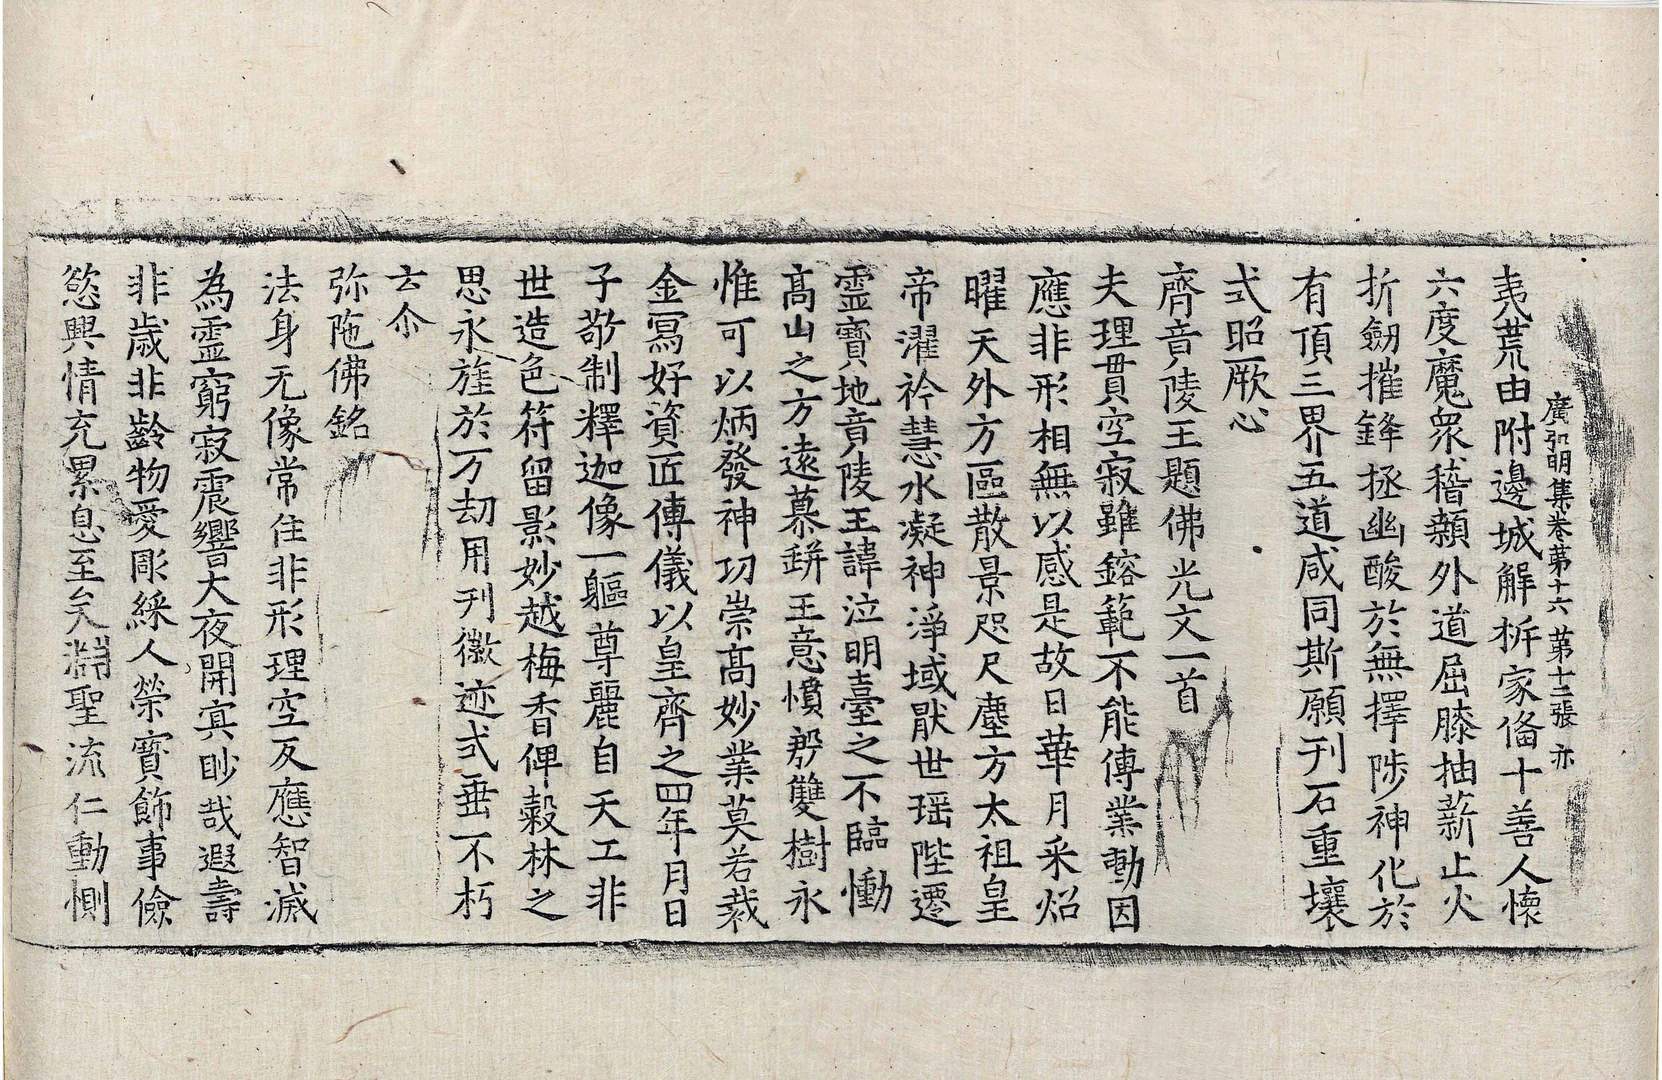 廣弘明集卷苐十六 苐十二張 亦
夷八荒由附邊城解柝家俻十善人懷
六度魔衆稽顙外道屈膝抽薪止火
折劒摧鋒拯幽酸於無擇陟神化於
有頂三界五道咸同斯願刋石重壤
式昭厥心
齊竟陵王題佛光文一首
夫理貫空寂雖鎔範不能傳業動因
應非形相無以感是故日華月采炤
曜天外方區散景咫尺塵方太祖皇
帝濯衿慧水凝神淨域猒世瑶陛遷
靈寶地竟陵王諱泣明臺之不臨慟
高山之方遠慕鉼王意憤㲉雙樹永
惟可以炳發神功崇高妙業莫若裁
金冩好資匠傳儀以皇齊之四年月日
子敬制釋迦像一軀尊麗自天工非
世造色符留影妙越梅香俾穀林之
思永旌於万劫用刋徽迹式垂不朽
云尒
弥陁佛銘
法身无像常住非形理空反應智滅
為靈窮寂震響大夜開冥眇哉遐壽
非歲非齡物愛彫綵人榮寶飾事儉
慾興情充累息至矣淵聖流仁動惻